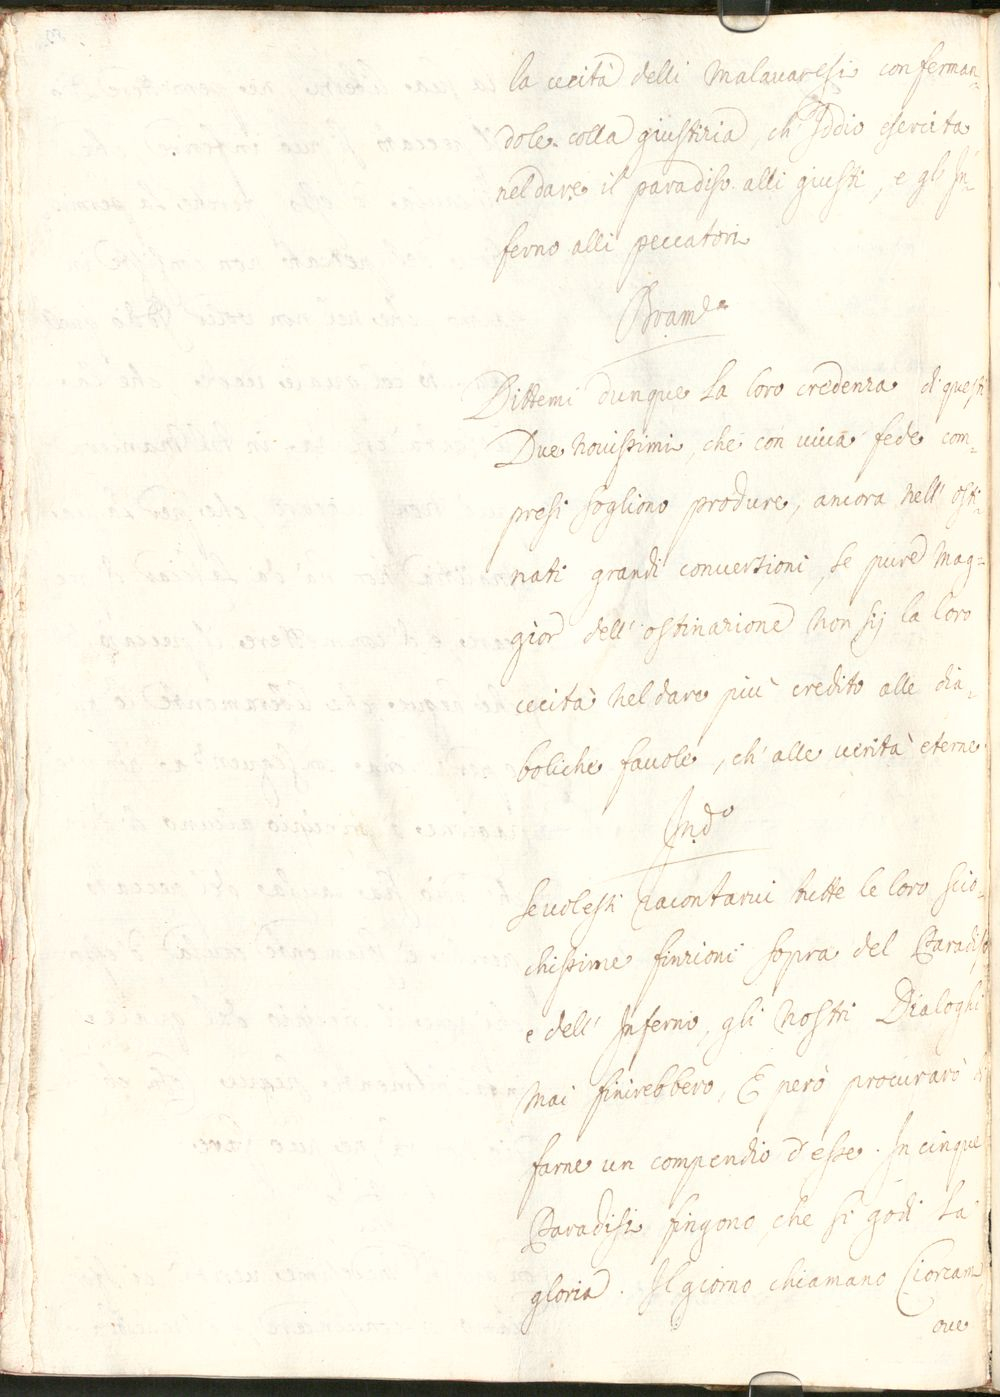 la cecità delli Malavaresi conferman-
dole colla giustizia, ch' Iddio esercita
nel dare il paradiso alli giusti, e gl' In-
ferno alli peccatori
Bram.e
Dittemi dunque la loro credenza di questi
Due Novissimi, che con viva fede com-
presi sogliono produre, ancora nell' osti-
nati grandi conversioni, se pure mag-
gior dell' ostinazione non sij la loro
cecità nel dare più credito alle dia-
boliche favole, ch' alle verità eterne
Ind.o
Se volessi racontarvi tutte le loro scio-
chissime finzioni sopra del Paradiso
e dell' Inferno, gli nostri Dialoghi
mai finirebbero, E però procurarò di
farne un compendio d' esse. In cinque
Paradisi fingono, che si godi la
gloria. Il giorno chiamano Ciorcam
ove